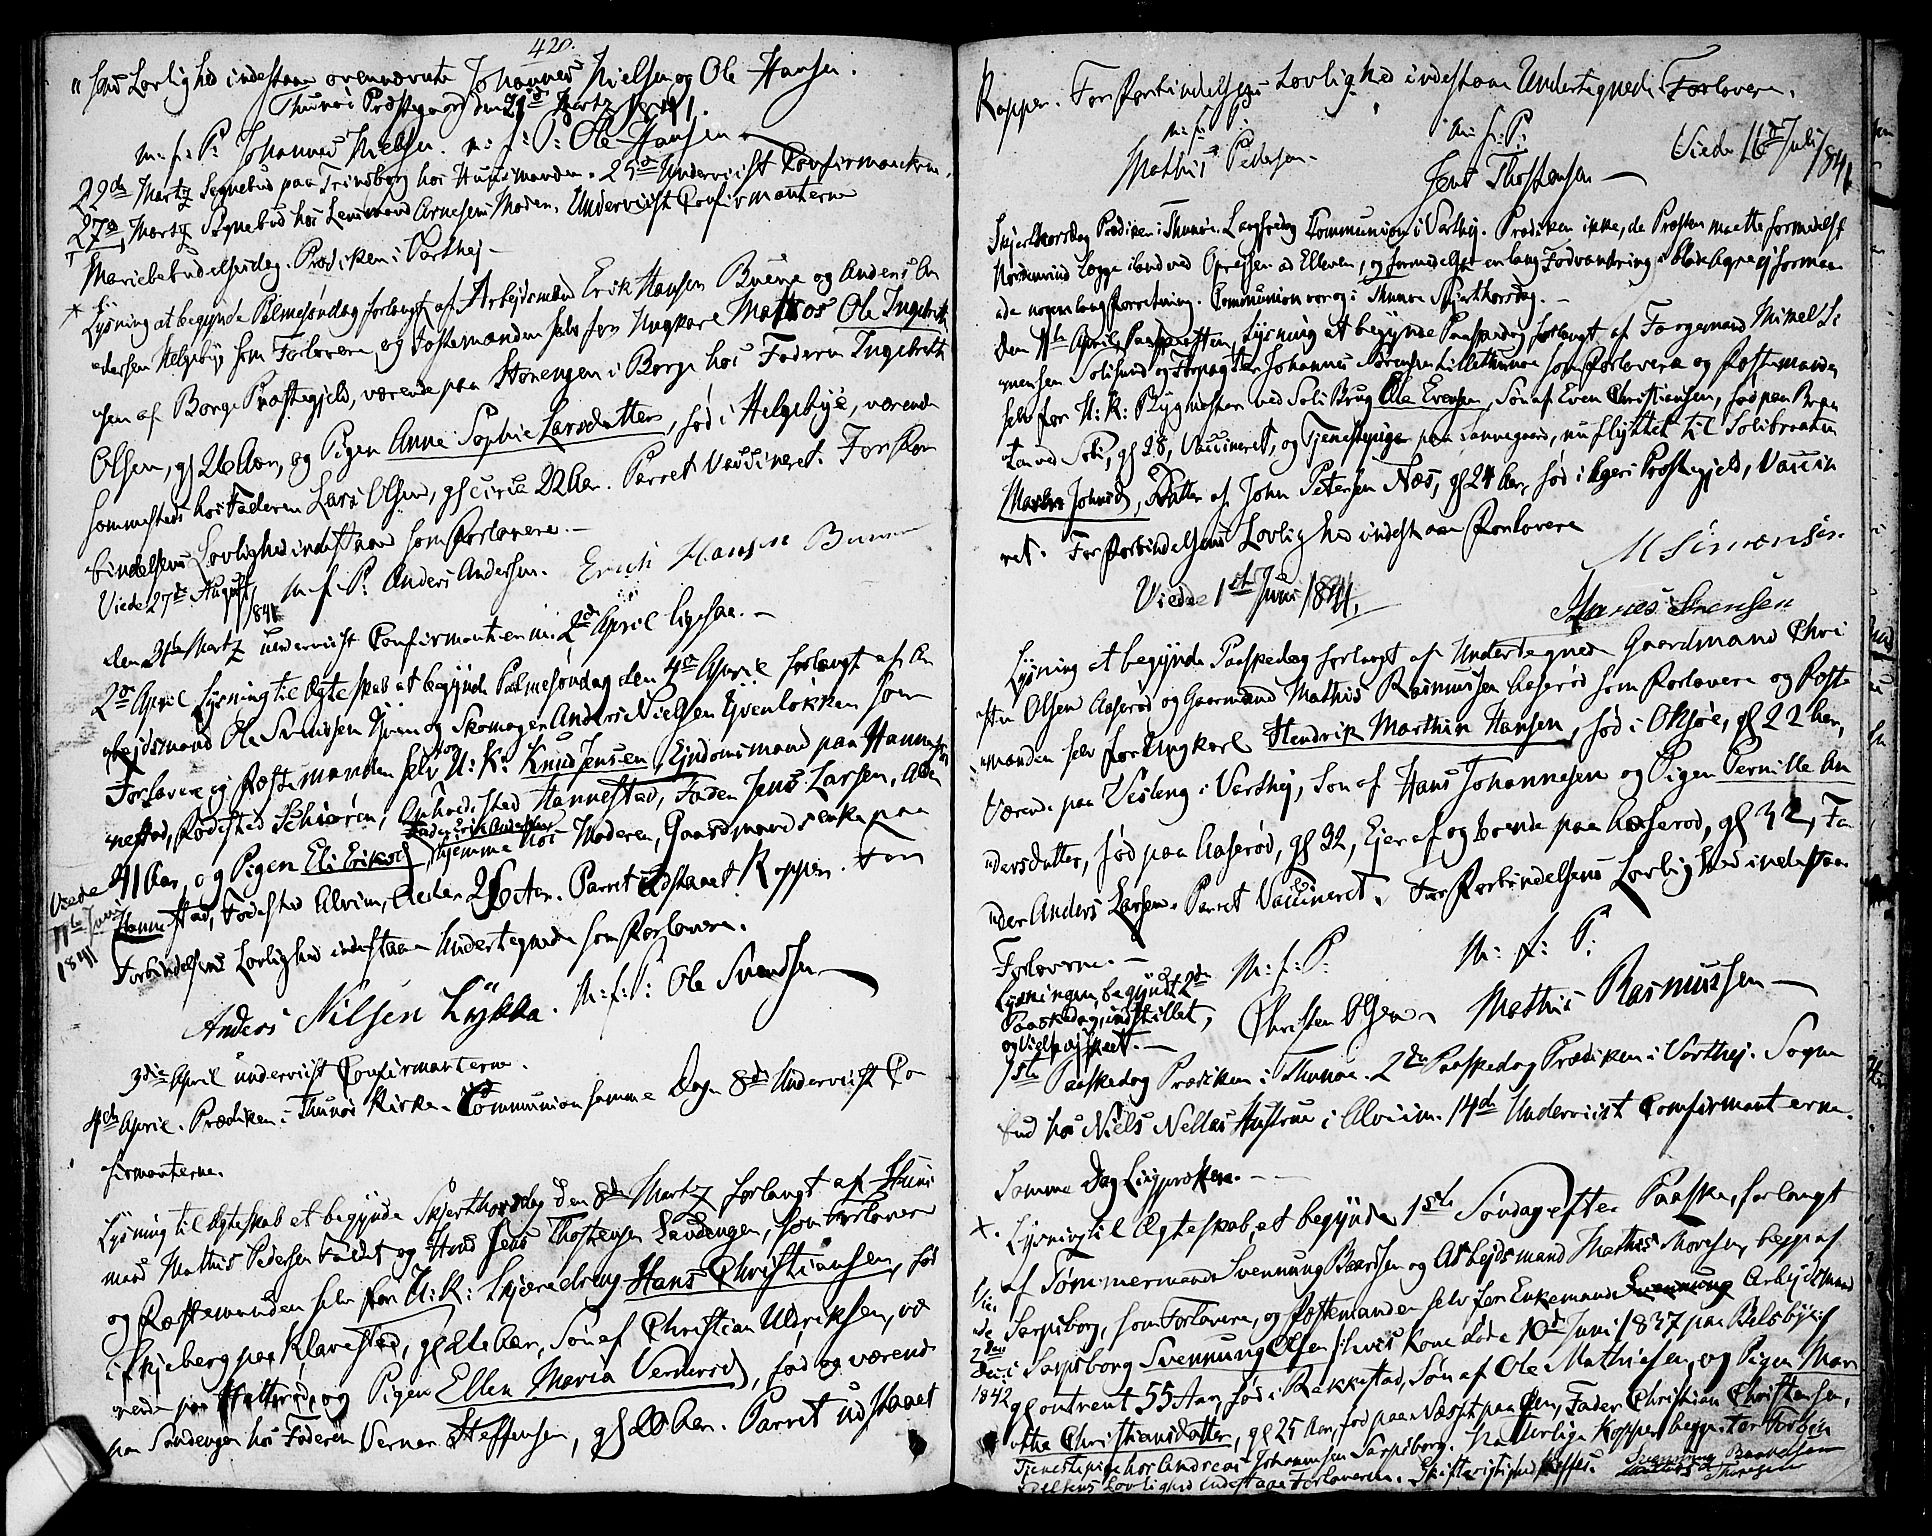 420.
"sens Lovlighed indestaae ovennævnte Johannes Nielsen og Ole Hansen.
Thunøe Præstegaard den 21de Martz 1841.
m: f: P: Johannes Nielsen. m: f: P: Ole Hansen
22de Martz Sognebud paa Trindborg hos Huusmanden. 25de Underviist Confirmanterne.
27de Martz Sognebud hos Lensmand Arnesens Moder. Underviist Confirmanterne
Mariebebudelsesdag. Prædiken i Varthej
Lysning at begynde Palmesøndag forlangt af Arbejdsmand Erik Hansen Buene og Anders An
dersen Helgebye som Forlovere, og Fæstemanden selv for Ungkarl Mathos Ole Ingebrith
sen af Borge Præstegjeld, værende paa Storengen i Borge hos Faderen Ingebrith
Olsen, gl 26 Aar, og Pigen Anne Sophie Larsdatter, fød i Helgebye, værende
sammesteds hos Faderen Lars Olsen, gl circa 22 Aar. Parret Vaccineret. For For
bindelsens Lovlighed indestaae som Forlovere.
Viede 27de August 1841 m. f. P. Anders Andersen. Erich Hansen Buene
den 31te Martz underviist Confirmanterne. 2de April ligesaa.
2de April Lysning til Ægteskab at begynde Palmesøndag den 4de April forlangt af Ar
bejdsmand Ole Svendsen Hven og Skomager Anders Nielsen Evenløkken som
Forlovere og Fæstemanden selv for U: K: Knud Jensen Ejendomsmand paa Hanne
nestad, Fødested Schiøren, Opholdssted Hannestad, Fader Jens Larsen, Alder
41 Aar, og Pigen Eli Eriksd, Fader Erik Andersen hjemme hos Moderen, Gaardmands enke paa
Hannestad, Fødested Alvim, Alder 26 Aar. Parret udstaaet Kopper. For
Forbindelsens Lovlighed indestaae Undertegnede som Forlovere.
Viede 11te Juni 1841
Anders Nilsen Lykka. M: f: P: Ole Svendsen
3die April underviist Confirmanterne.
4de April. Prædiken i Thunøe Kirke. Communion samme Dag. 8de Underviist Con
firmanterne.
Lysning til Ægteskab at begynde Skjerthorsdag den 8de Martz forlangt af Huus
mand Mathis Pedersen Faldet og Huusmd Jens Thostensen Sandengen, som Forlovere
og Fæstemanden selv for U: K: Skjæredreng Hans Christiansen, fød
i Skjeberg paa Klavestad, gl 21 Aar, Søn af Christian Uldriksen, væ
rende paa Hatterød, og Pigen Ellen Maria Vernersd, fød og værende
paa Sandengen hos Faderen Verner Steffensen, gl 20 Aar. Parret udstaaet
Kopper. For Forbindelsens Lovlighed indestaae Undertegnede Forlovere.
m: f: P: m: f: P: Viede 16de Juli 1841
Mathis Pedersen. Jens Thostensen
Skjerthorsdag Prædiken i Thunøe. Langfredag Communion i Varthej. Prædiken ikke, da Præsten maatte formedelst
Nordenvind lægge iland ved Oprejsen ad Elleven, og formedelst en lang Fodvandring i Blade Agre ej forma
ade nogen lang Forretning. Communion var og i Thunøe Skjerthorsdag.
den 11te April, Paaskeaften, Lysning at begynde Paaskedag forlangt af Forgemand Mikel Si
mensen Solisund og Forpagter Johannes Sørensen Lillethunøe som Forlovere og Fæstemanden
selv for U: K: Bygmester ved Soli Brug Ole Evensen, Søn af Even Christiansen, fød paa Bran
tan ved Soli, gl 28, Vaccineret, og Tjenestepige paa Sannegaard, nu flyttet til Solibraaten
Maren Johnsd, Datter af John Petersen Næs, gl 24 Aar, fød i Agers Præstegjeld, Vaccin
ret. For Forbindelsens Lovlighed indestaae Forlovere
Viede 1ste Juni 1841. M Simensen
Hanes Sørensen
Lysning at begynde Paaskedag forlangt af Undertegnede Gaardmand Chri
sten Olsen Aaserød og Gaarmand Mathis Rasmussen Aaserød som Forlovere og Fæste
manden selv for Ungkarl Hendrik Marthin Hansen, fød i Oksøe, gl 22 Aar,
Værende paa Visleng i Varthej, Søn af Hans Johannesen og Pigen Pernille An
dersdatter, fød paa Aaserød, gl 32, Ejer af og boende paa Aaserød, gl 32, Fa
der Anders Larsen. Parret Vaccineret. For Forbindelsens Lovlighed indestaae
Forloverne.
m: f: P: m: f: P:
Lysningen, begyndt 2de
Paaskedag, indstillet,
og Vielse ej skeet.
Christen Olsen Mathis Rasmussen
1ste Paaskedag Prædiken i Thunøe. 2den Paaskedag Prædiken i Varthej. Sogne
bud hos Niels Nellas Hustrue i Alvim. 14de Underviist Confirmanterne.
Samme Dag Liigprædiken.
Lysning til Ægteskab, at begynde 1ste Søndag efter Paaske, forlangt
af Tømmermand Svennung Baardsen og Arbejdsmand Mathis Thoresen, begge af
Sarpsborg, som Forlovere, og Fæstemanden selv for Enkemand Arbejdsmand
i Sarpsborg Svennung Olsen, hvis Kone døde 10de Juni 1837 paa Belsbye,
gl omtrent 55 Aar, fød i Rakkestad, Søn af Ole Mathiesen, og Pigen Mar
the Christiansdatter, gl 25 Aar, fød paa Næsset paa Øen, Fader Christian Christensen,
Tjenestepige hos Andreas Johannesen Sarpsborg. Naturlige Kopper begge. For Forbin
delsens Lovlighed indestaae Forloverne. Skifterigtighed haffes. Svennung Baardsen
Mathis Thoresen
Viede 1842